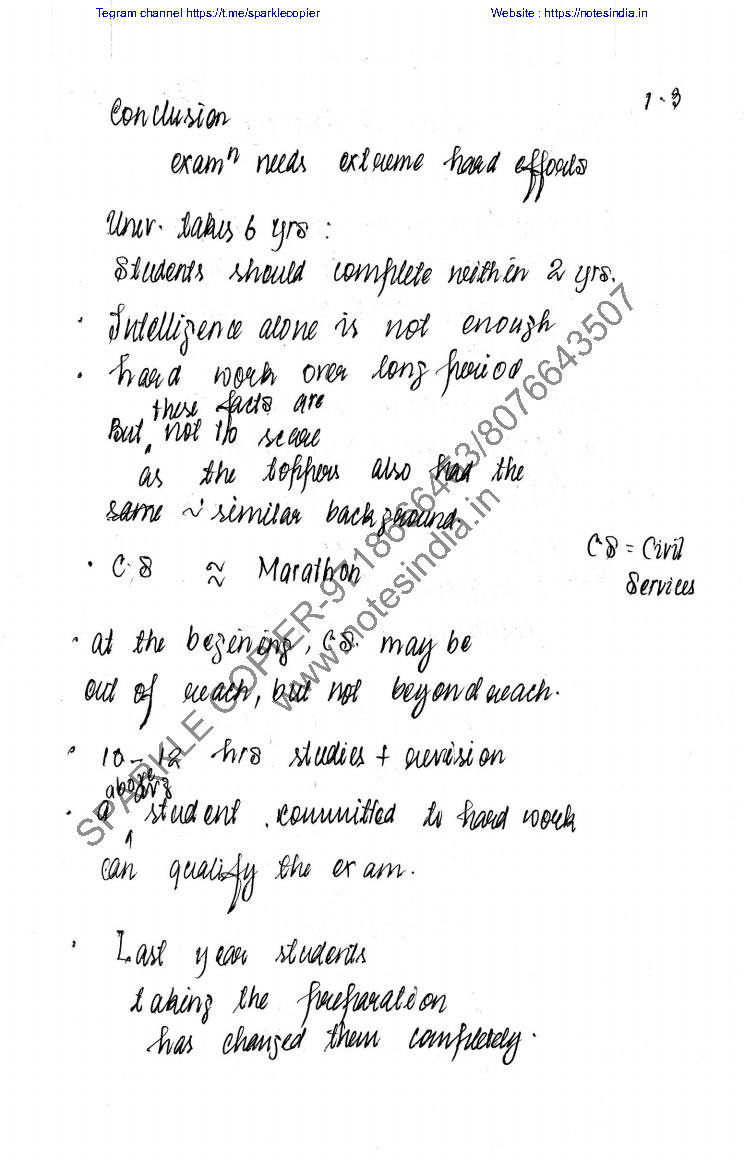 Tegram channel https://t.me/sparklecopier Website : https://notesindia.in
1.3
Conclusion
examⁿ needs extreme hard efforts
Univ. takes 6 yrs :
Students should complete within 2 yrs.
· Intelligence alone is not enough
· hard work over long period
these facts are
But not to scare
as the toppers also had the
same ~ similar background.
· C.S ≈ Marathon
CS = Civil
Services
· at the begining, CS. may be
out of reach, but not beyond reach.
· 10-12 hrs studies + revision
above avg
· a student committed to hard work
can qualify the exam.
· Last year students
taking the preparation
has changed them completely.
SPARKLE COPIER-9718666453/8076643507
www.notesindia.in